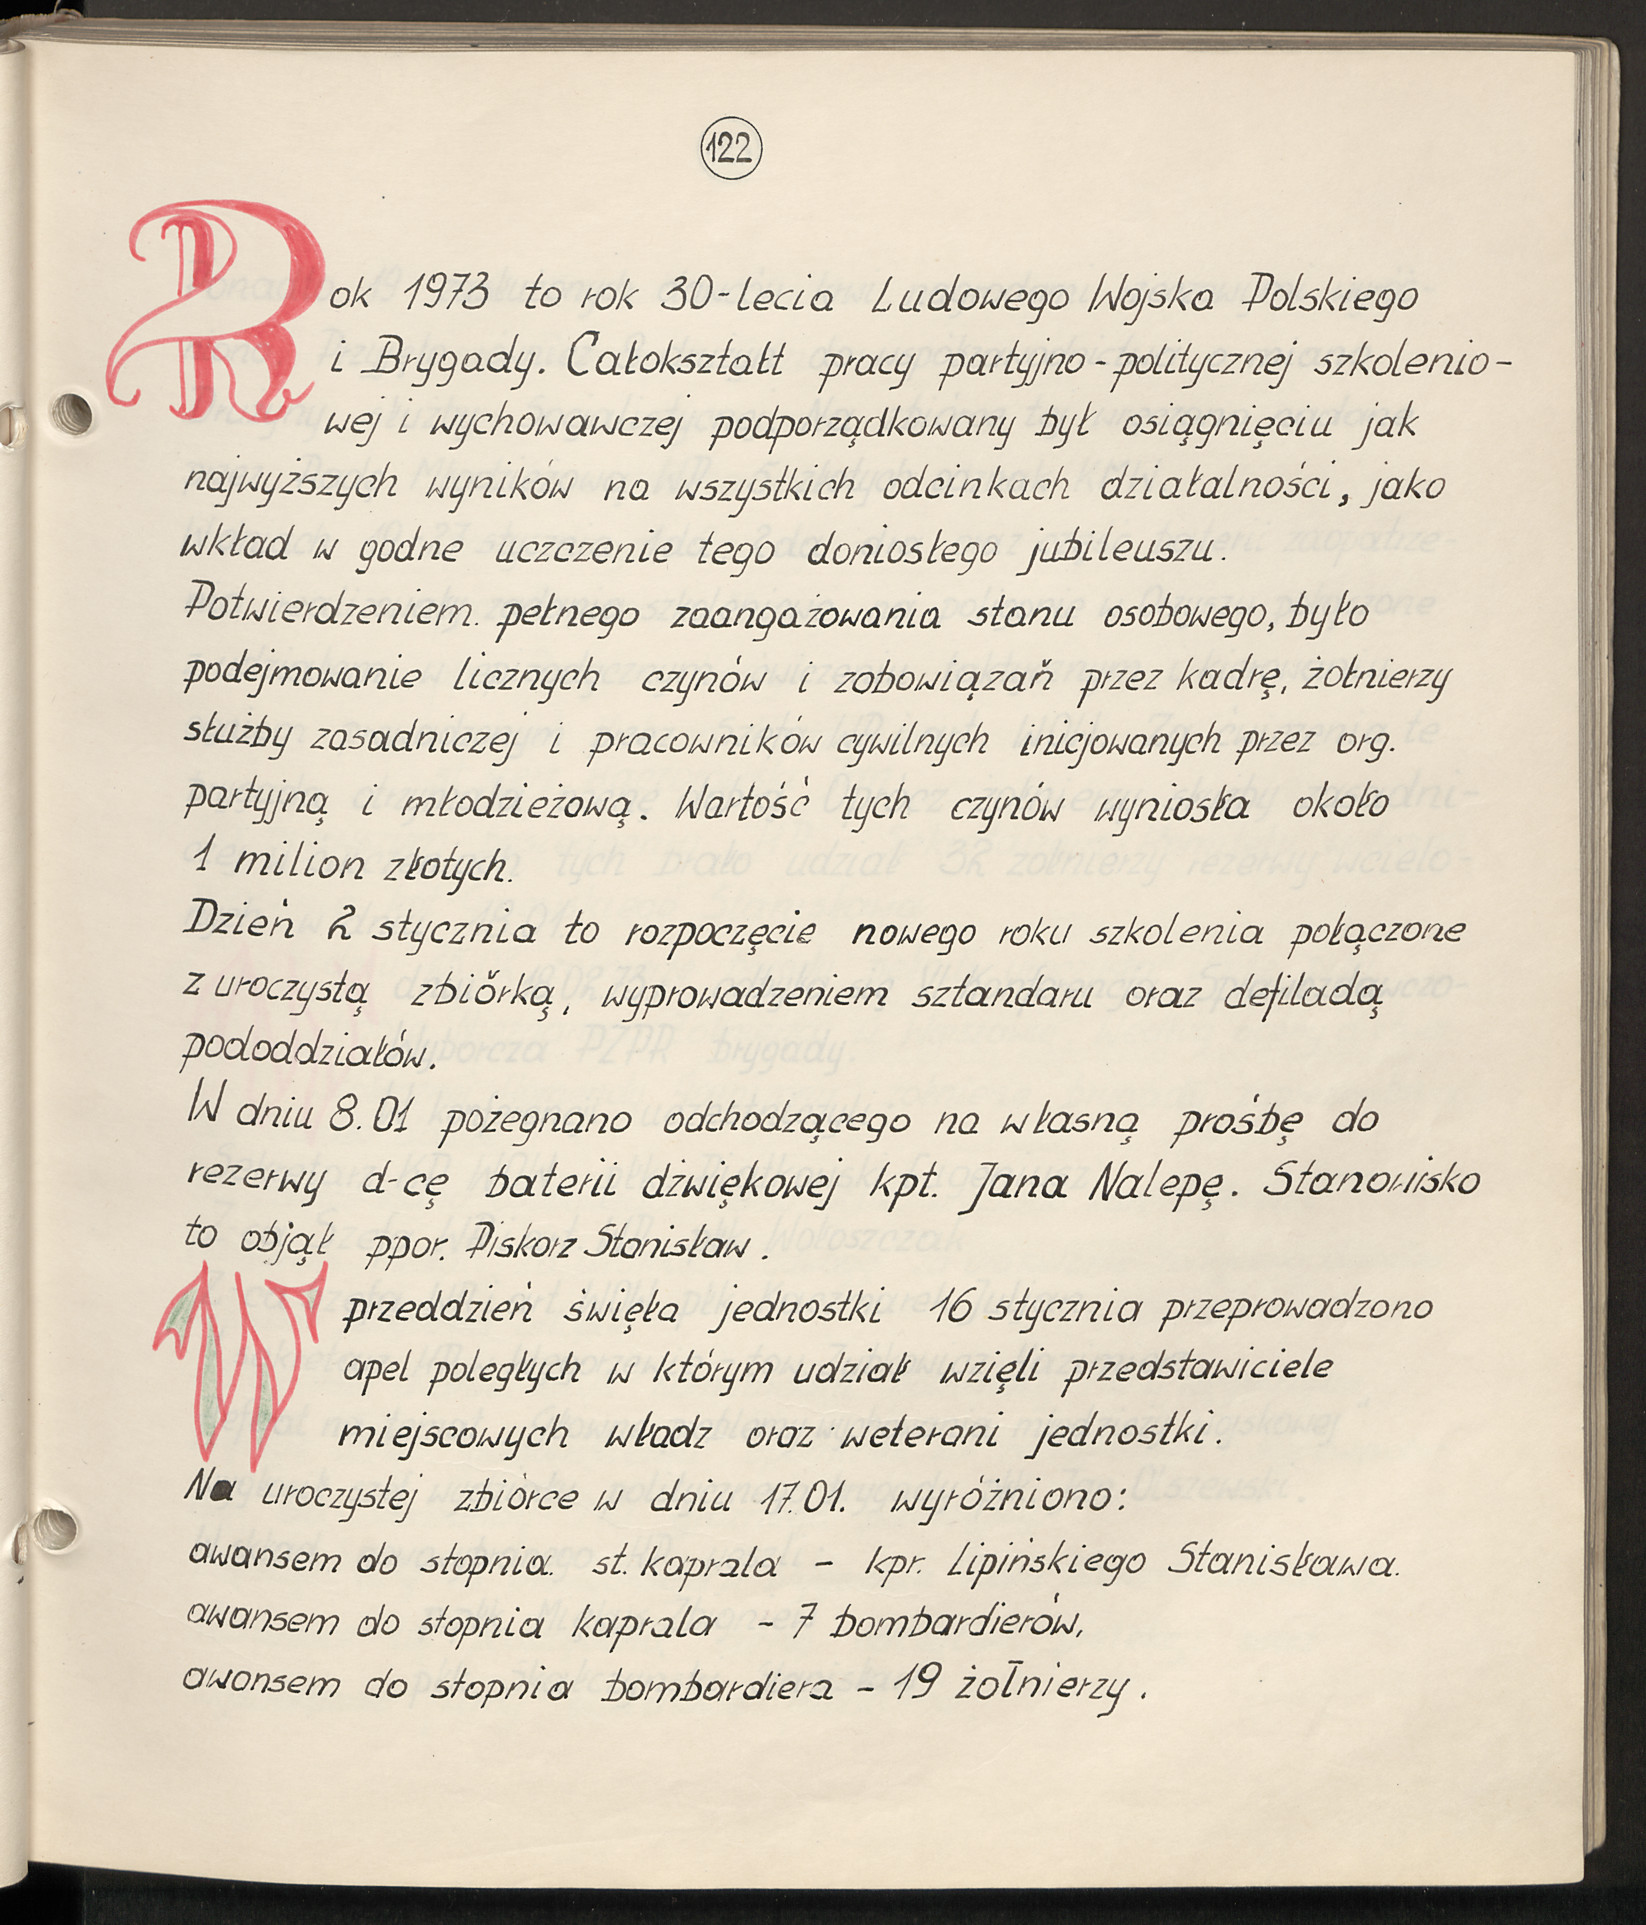 122
Rok 1973 to rok 30-lecia Ludowego Wojska Polskiego
i Brygady. Całokształt pracy partyjno-politycznej szkolenio-
wej i wychowawczej podporządkowany był osiągnięciu jak
najwyższych wyników na wszystkich odcinkach działalności, jako
wkład w godne uczczenie tego doniosłego jubileuszu.
Potwierdzeniem. pełnego zaangażowania stanu osobowego, było
podejmowanie licznych czynów i zobowiązań przez kadrę, żołnierzy
służby zasadniczej i pracowników cywilnych inicjowanych przez org.
partyjną i młodzieżową. Wartość tych czynów wyniosła około
1 milion złotych.
Dzień 2 stycznia to rozpoczęcie nowego roku szkolenia połączone
z uroczystą zbiórką, wyprowadzeniem sztandaru oraz defiladą
pododdziałów.
W dniu 8.01 pożegnano odchodzącego na własną prośbę do
rezerwy d-cę baterii dźwiękowej kpt. Jana Nalepę. Stanowisko
to objął ppor. Piskorz Stanisław.
W przeddzień święta jednostki 16 stycznia przeprowadzono
apel poległych w którym udział wzięli przedstawiciele
miejscowych władz oraz weterani jednostki.
Na uroczystej zbiórce w dniu 17.01. wyróżniono:
awansem do stopnia. st. kaprala - kpr. Lipińskiego Stanisława.
awansem do stopnia kaprala - 7 bombardierów,
awansem do stopnia bombardiera - 19 żołnierzy.